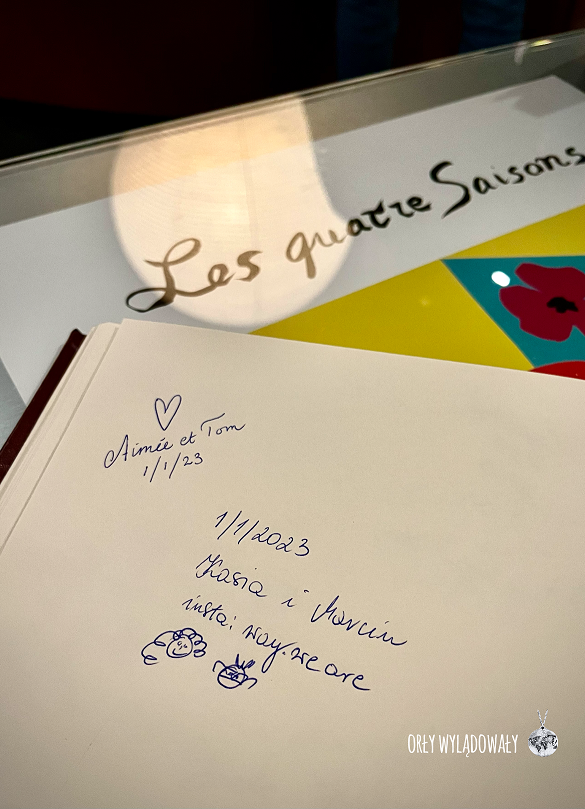 Les quatre Saisons
Aimée et Tom
1/1/23
1/1/2023
Kasia i Marcin
insta: way.we are
ORŁY WYLĄDOWAŁY